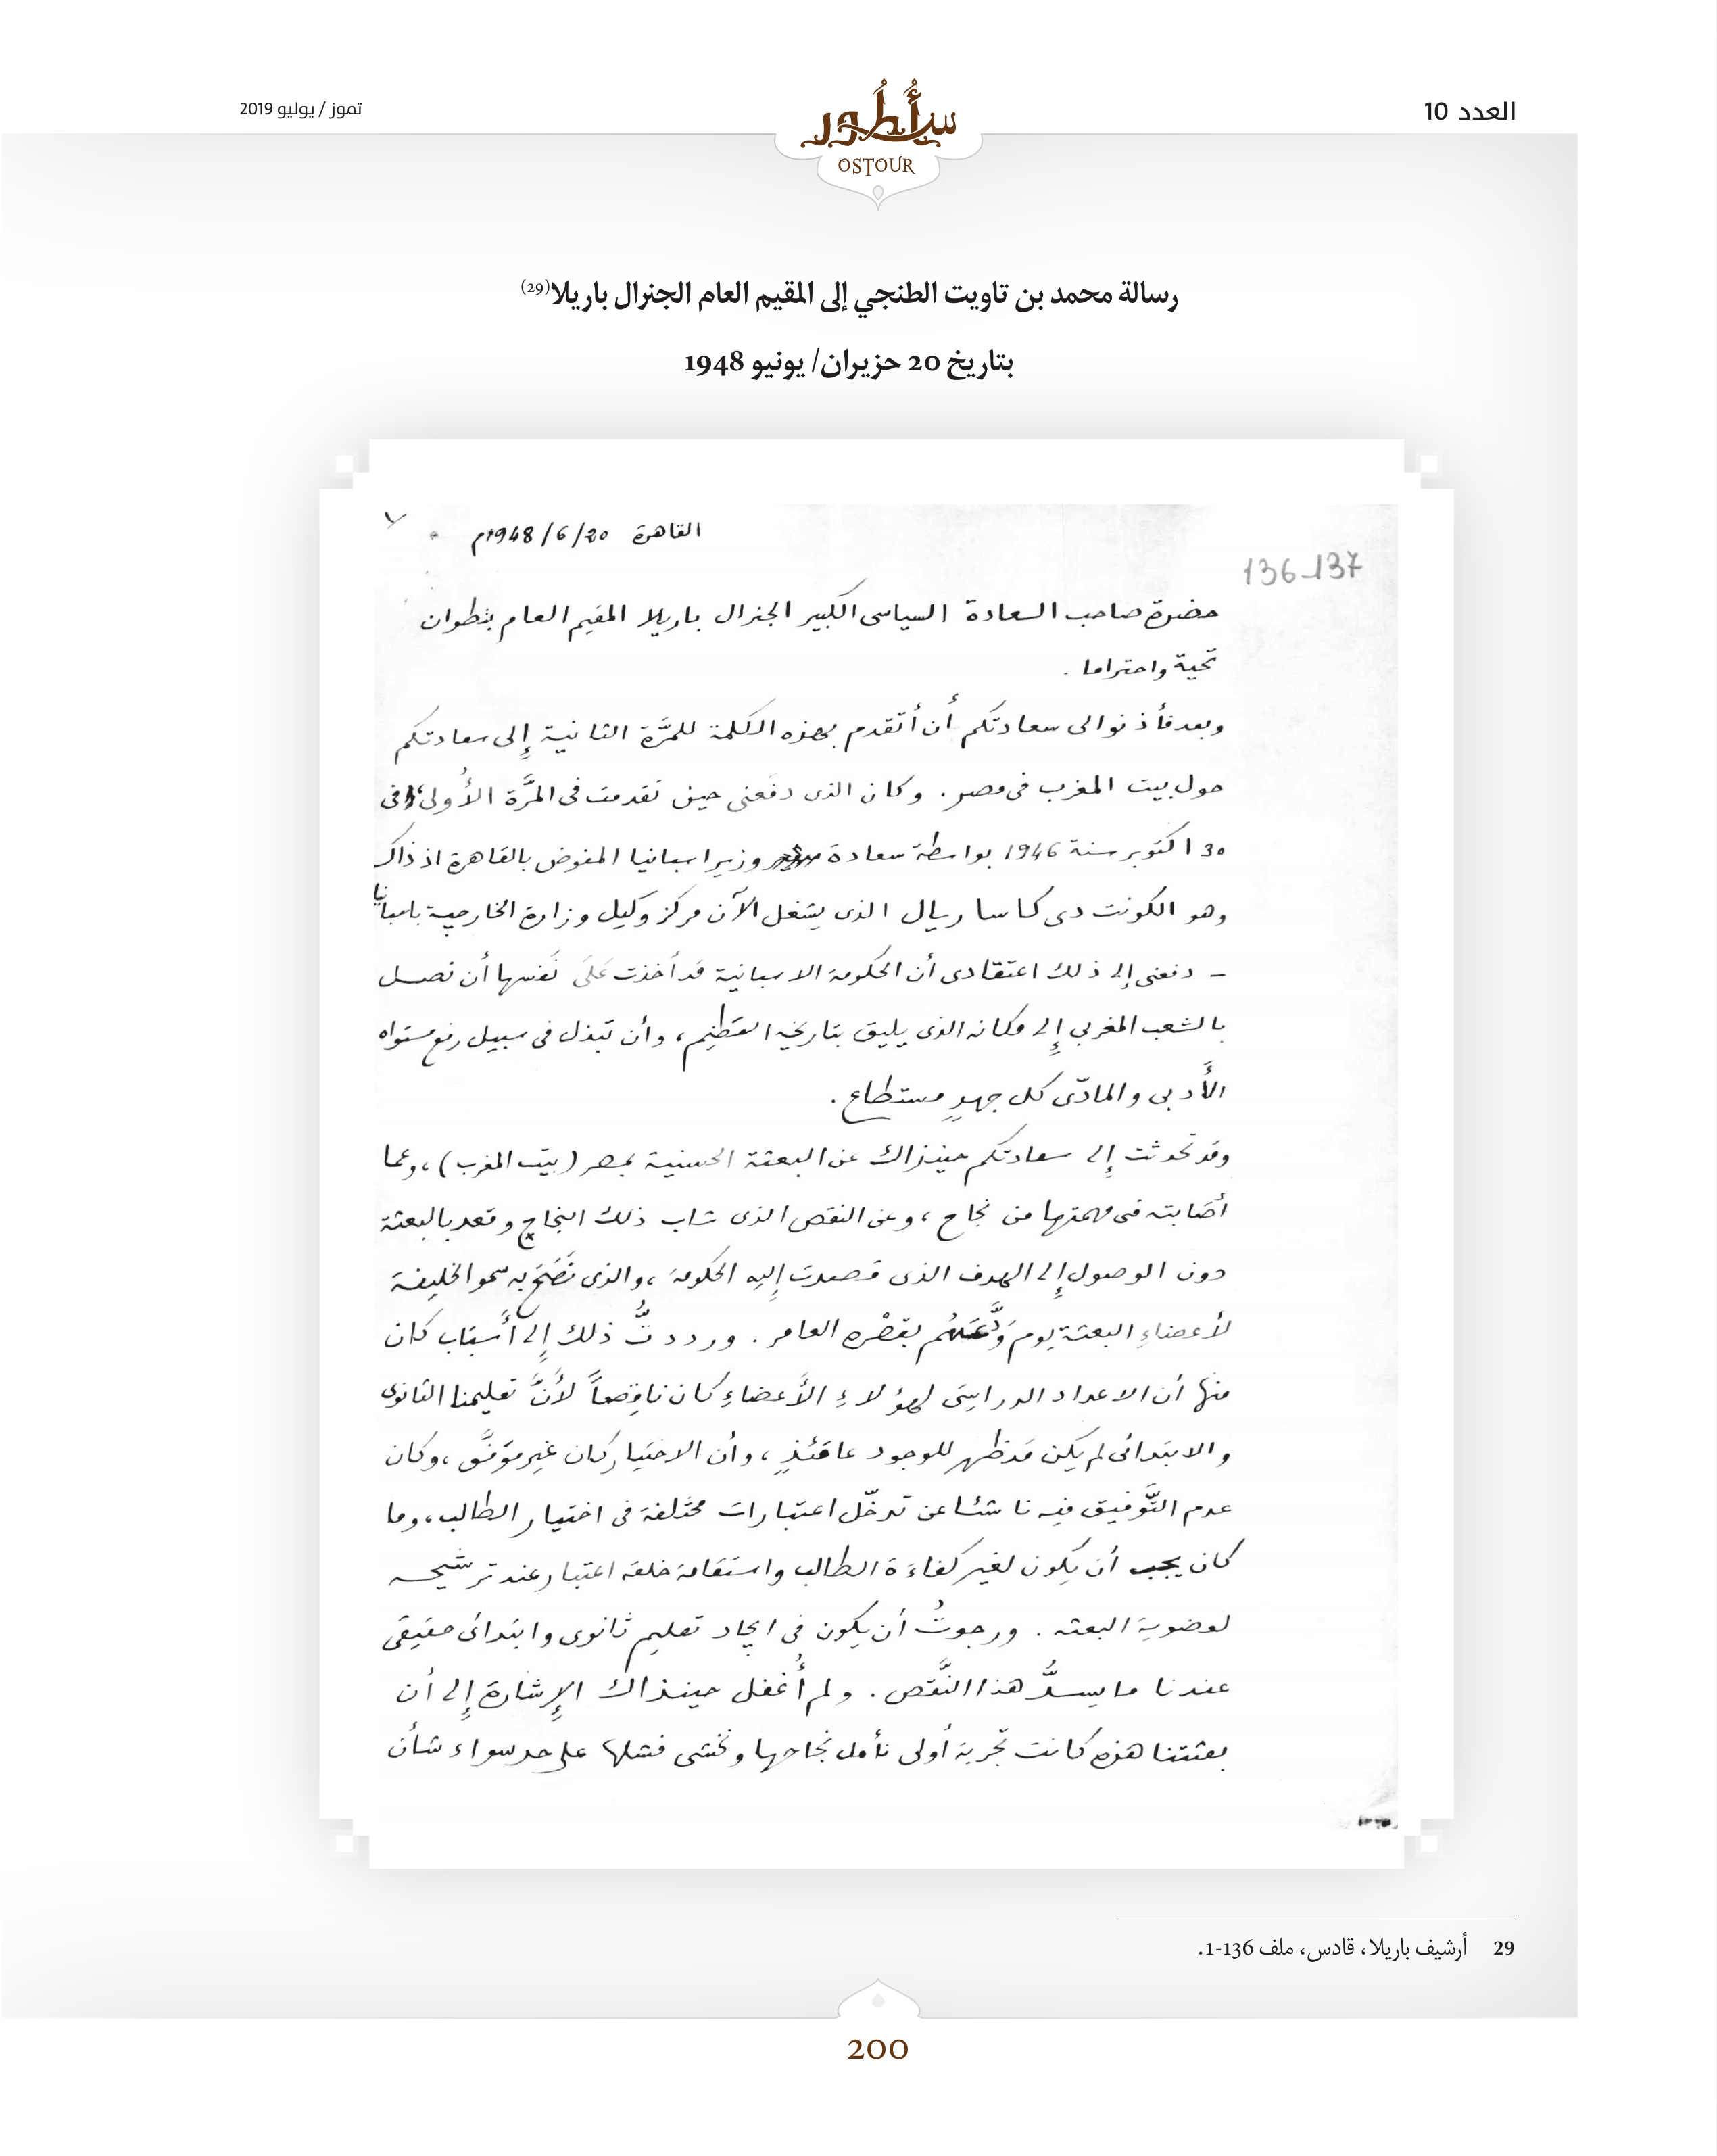 العدد 10
أسطور
OSTOUR
تموز / يوليو 2019
رسالة محمد بن تاويت الطنجي إلى المقيم العام الجنرال باريلا(29)
بتاريخ 20 حزيران/ يونيو 1948
القاهرة 20/6/1948م
136-137
حضرة صاحب السعادة السياسى الكبير الجنرال باريلا المقيم العام بتطوان
تحية واحتراما .
وبعد فأذنوا لى سعادتكم أن أتقدم بهذه الكلمة للمرَّة الثانية إلى سعادتكم
حول بيت المغرب فى مصر . وكان الذى دفعنى حين تقدمت فى المرَّة الأولى فى
30 اكتوبر سنة 1946 بواسطة سعادة وزير اسبانيا المفوض بالقاهرة اذ ذاك
وهو الكونت دى كاسا ريال الذى يشغل الآن مركز وكيل وزارة الخارجية باسبانيا
- دفعنى إلى ذلك اعتقادى أن الحكومة الاسبانية قد أخذت عَلَى نَفسها أن تصل
بالشعب المغربي إلى مكانه الذى يليق بتاريخه العظيم ، وأن تبذل فى سبيل رفع مستواه
الأَدبى والمادّى كل جهدٍ مستطاع .
وقد تحدثت إلى سعادتكم حينذاك عن البعثة الحسنية بمصر (بيت المغرب) ، وعما
أصَابته فى مهمتها من نجاح ، وعن النقص الذى شاب ذلك النجاح وقعد بالبعثة
دون الوصول إلى الهدف الذى قصدت إليه الحكومة ، والذى نَصَحَ به سمو الخليفة
لأعضاءِ البعثة يوم وَدَّعَهُم بقصْره العامر . ورددتُّ ذلك إلى أسبَاب كان
منها أن الاعداد الدراسِى لهؤلاءِ الأَعضاءِ كان ناقِصاً لأنَّ تعليمنا الثانوى
والابتدائى لم يكن قد ظهر للوجود عاقئذٍ ، وأن الاختيار كان غير موَفَّق ، وكان
عدم التَّوفيق فيه ناشئا عن تدخّل اعتبارات مختلفة فى اختيار الطالب ، وما
كان يجب أن يكون لغير كفاءَة الطالب واستقامة خلقه اعتبار عند ترشيحه
لعضوية البعثه . ورجوتُ أن يكون فى ايجاد تعليم ثانوى وابتدائى حقيقى
عندنا ما يسدُّ هذا النَّقص . ولم أُغفل حينذاك الإشارة إلى أن
بعثتنا هذه كانت تجربة أولى نأمل نجاحها ونخشى فشلها على حد سواء شأن
29 أرشيف باريلا، قادس، ملف 136-1.
200